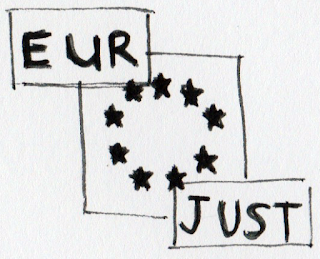 EUR
JUST